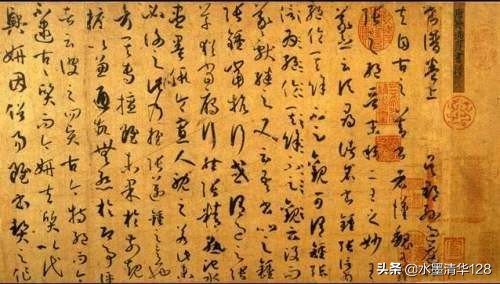 書譜卷上 吳郡孫過庭撰
夫自古之善書者漢魏有鍾
張之絕晉末稱二王之妙王
羲之云頃尋諸名書鍾張信
為絕倫其餘不足觀可謂鍾張云沒而
羲獻繼之又云吾書比之
鍾張鍾當抗行或謂過之張
草猶當雁行然張精熟池水
盡墨假令寡人耽之若此未
必謝之此乃推張邁鍾之意也
考其專擅雖未果於前規摭
以兼通故無慚於即事評
者云彼之四賢古今特絕而今
不逮古古質而今妍夫質以代
興妍因俗易雖書契之作
头条 @水墨清华128